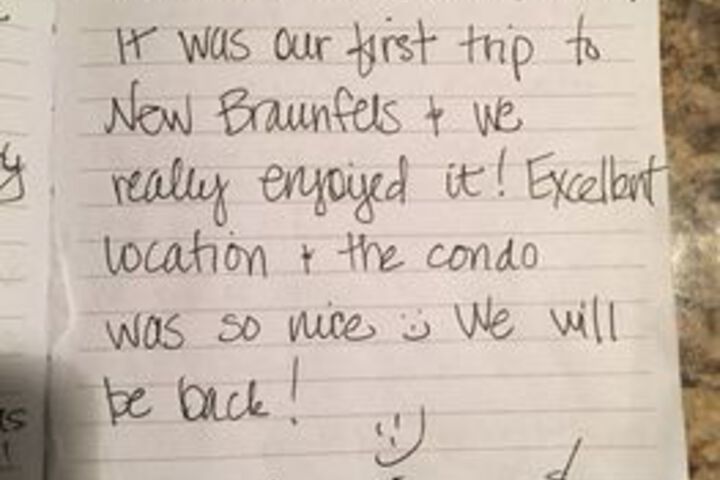 It was our first trip to
New Braunfels + we
really enjoyed it! Excellent
location + the condo
was so nice :) We will
be back!
:)